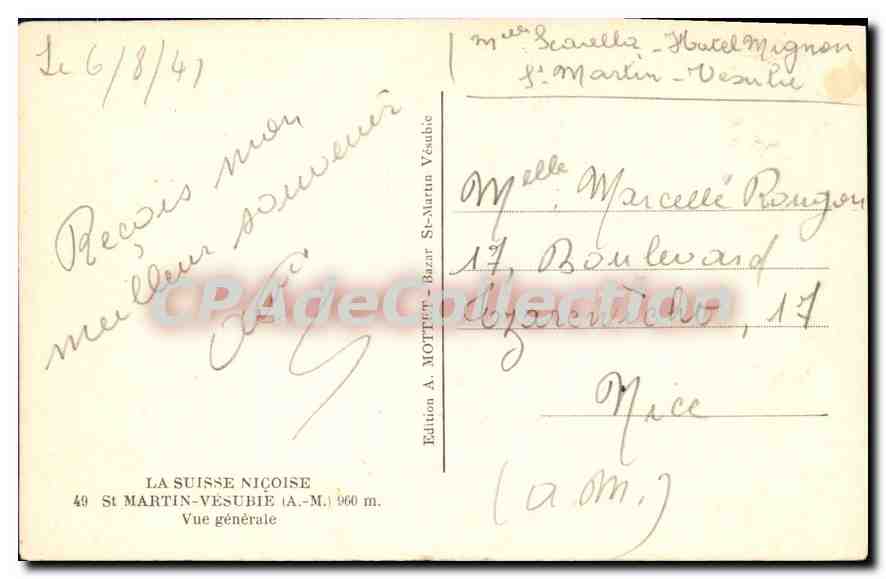 Le 6/8/41
Reçois mon
meilleur souvenir
Melle Scarella - Hotel Mignon
St Martin - Vesubie
Melle Marcelle Rougon
17, Boulevard
Tzarewitch, 17
Nice
(a.M.)
Edition A. MOTTET - Bazar St-Martin Vésubie
CPADeCollection
LA SUISSE NIÇOISE
49 St MARTIN-VÉSUBIE (A.-M.) 960 m.
Vue générale